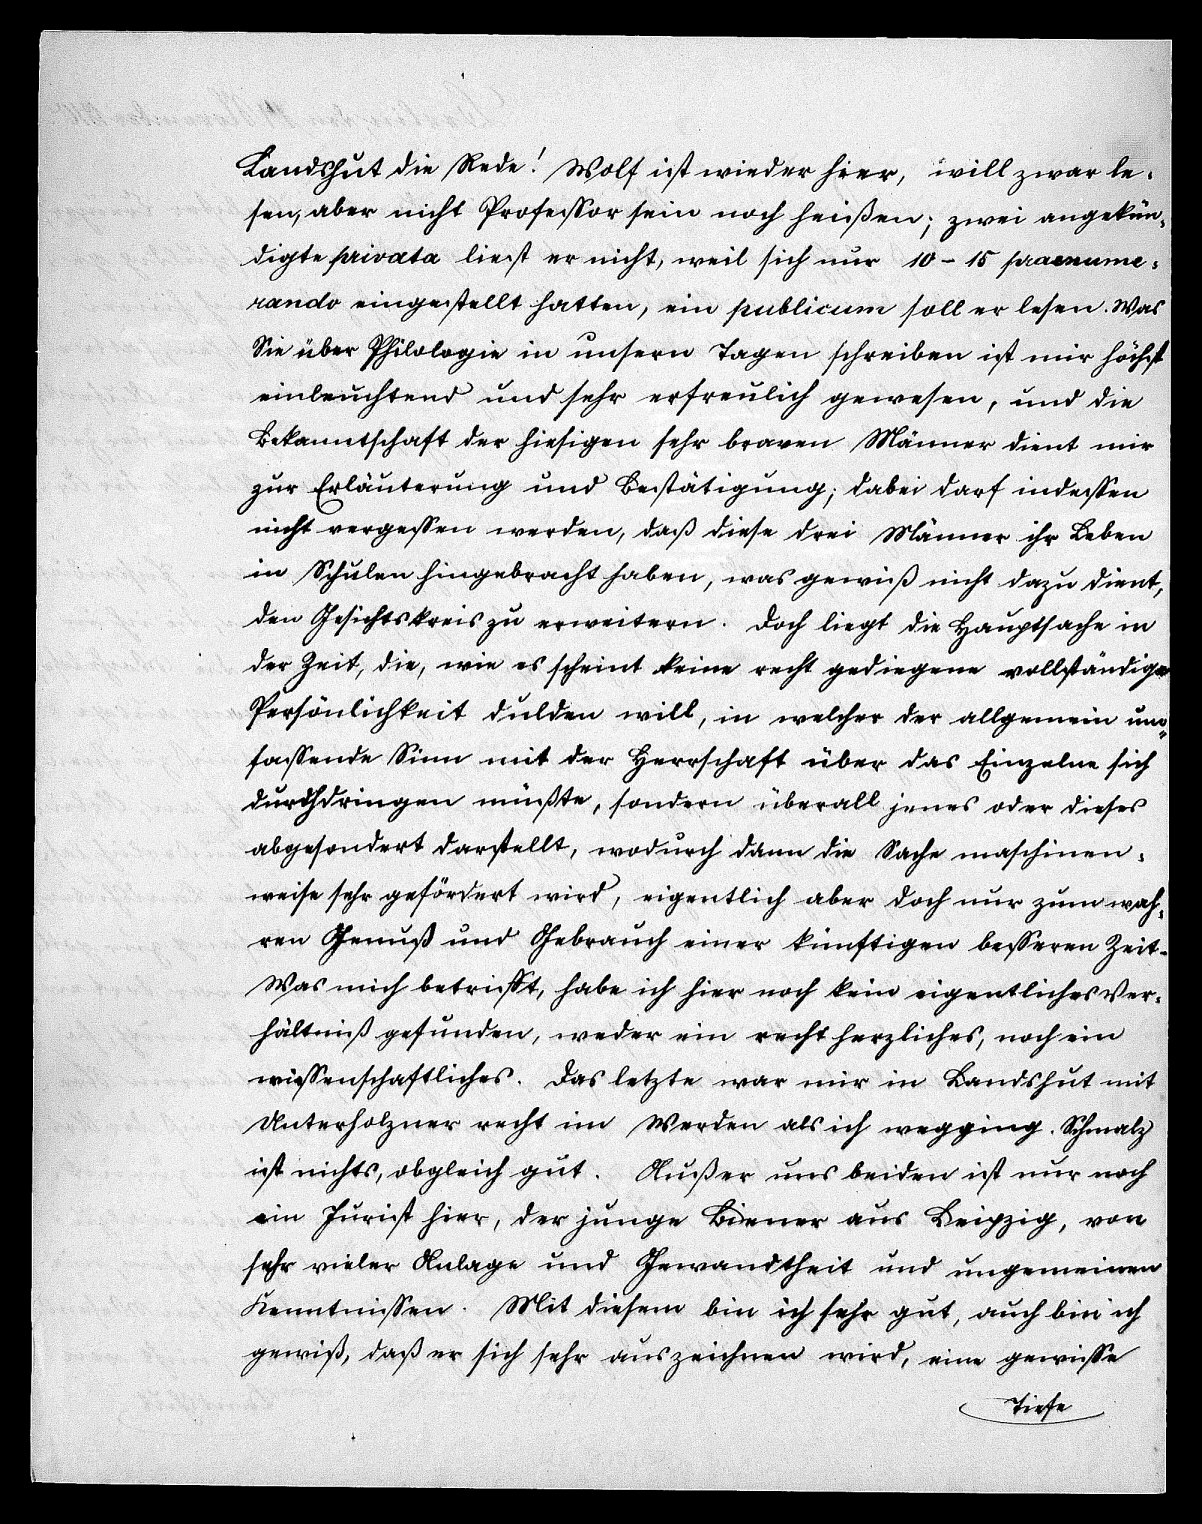 Landshut die Rede! Wolf ist wieder hier, will zwar le-
sen, aber nicht Professor sein noch heißen; zwei angekün-
digte privata liest er nicht, weil sich nur 10 - 15 praenume-
rando eingestellt hatten, ein publicum soll er lesen. Was
Sie über Philologie in unsern Tagen schreiben ist mir höchst
einleuchtend und sehr erfreulich gewesen, und die
Bekanntschaft der hiesigen sehr braven Männer dient mir
zur Erläuterung und Bestätigung; dabei darf indessen
nicht vergessen werden, daß diese drei Männer ihr Leben
in Schulen hingebracht haben, was gewiß nicht dazu dient,
den Gesichtskreis zu erweitern. Doch liegt die Hauptsache in
der Zeit, die, wie es scheint keine recht gediegene vollständige
Persönlichkeit dulden will, in welcher der allgemein um-
fassende Sinn mit der Herrschaft über das Einzelne sich
durchdringen müßte, sondern überall jenes oder dieses
abgesondert darstellt, wodurch dann die Sache maschinen-
weise sehr gefördert wird, eigentlich aber doch nur zum wah-
ren Genuß und Gebrauch einer künftigen besseren Zeit.
Was mich betrifft, habe ich hier noch kein eigentliches Ver-
hältniß gefunden, weder ein recht herzliches, noch ein
wissenschaftliches. Das letzte war mir in Landshut mit
Unterholzner recht im Werden als ich wegging. Schmalz
ist nichts, obgleich gut. Außer uns beiden ist nur noch
ein Jurist hier, der junge Biener aus Leipzig, von
sehr vieler Anlage und Gewandtheit und ungemeinen
Kenntnissen. Mit diesem bin ich sehr gut, auch bin ich
gewiß, daß er sich sehr auszeichnen wird, eine gewisse
Tiefe